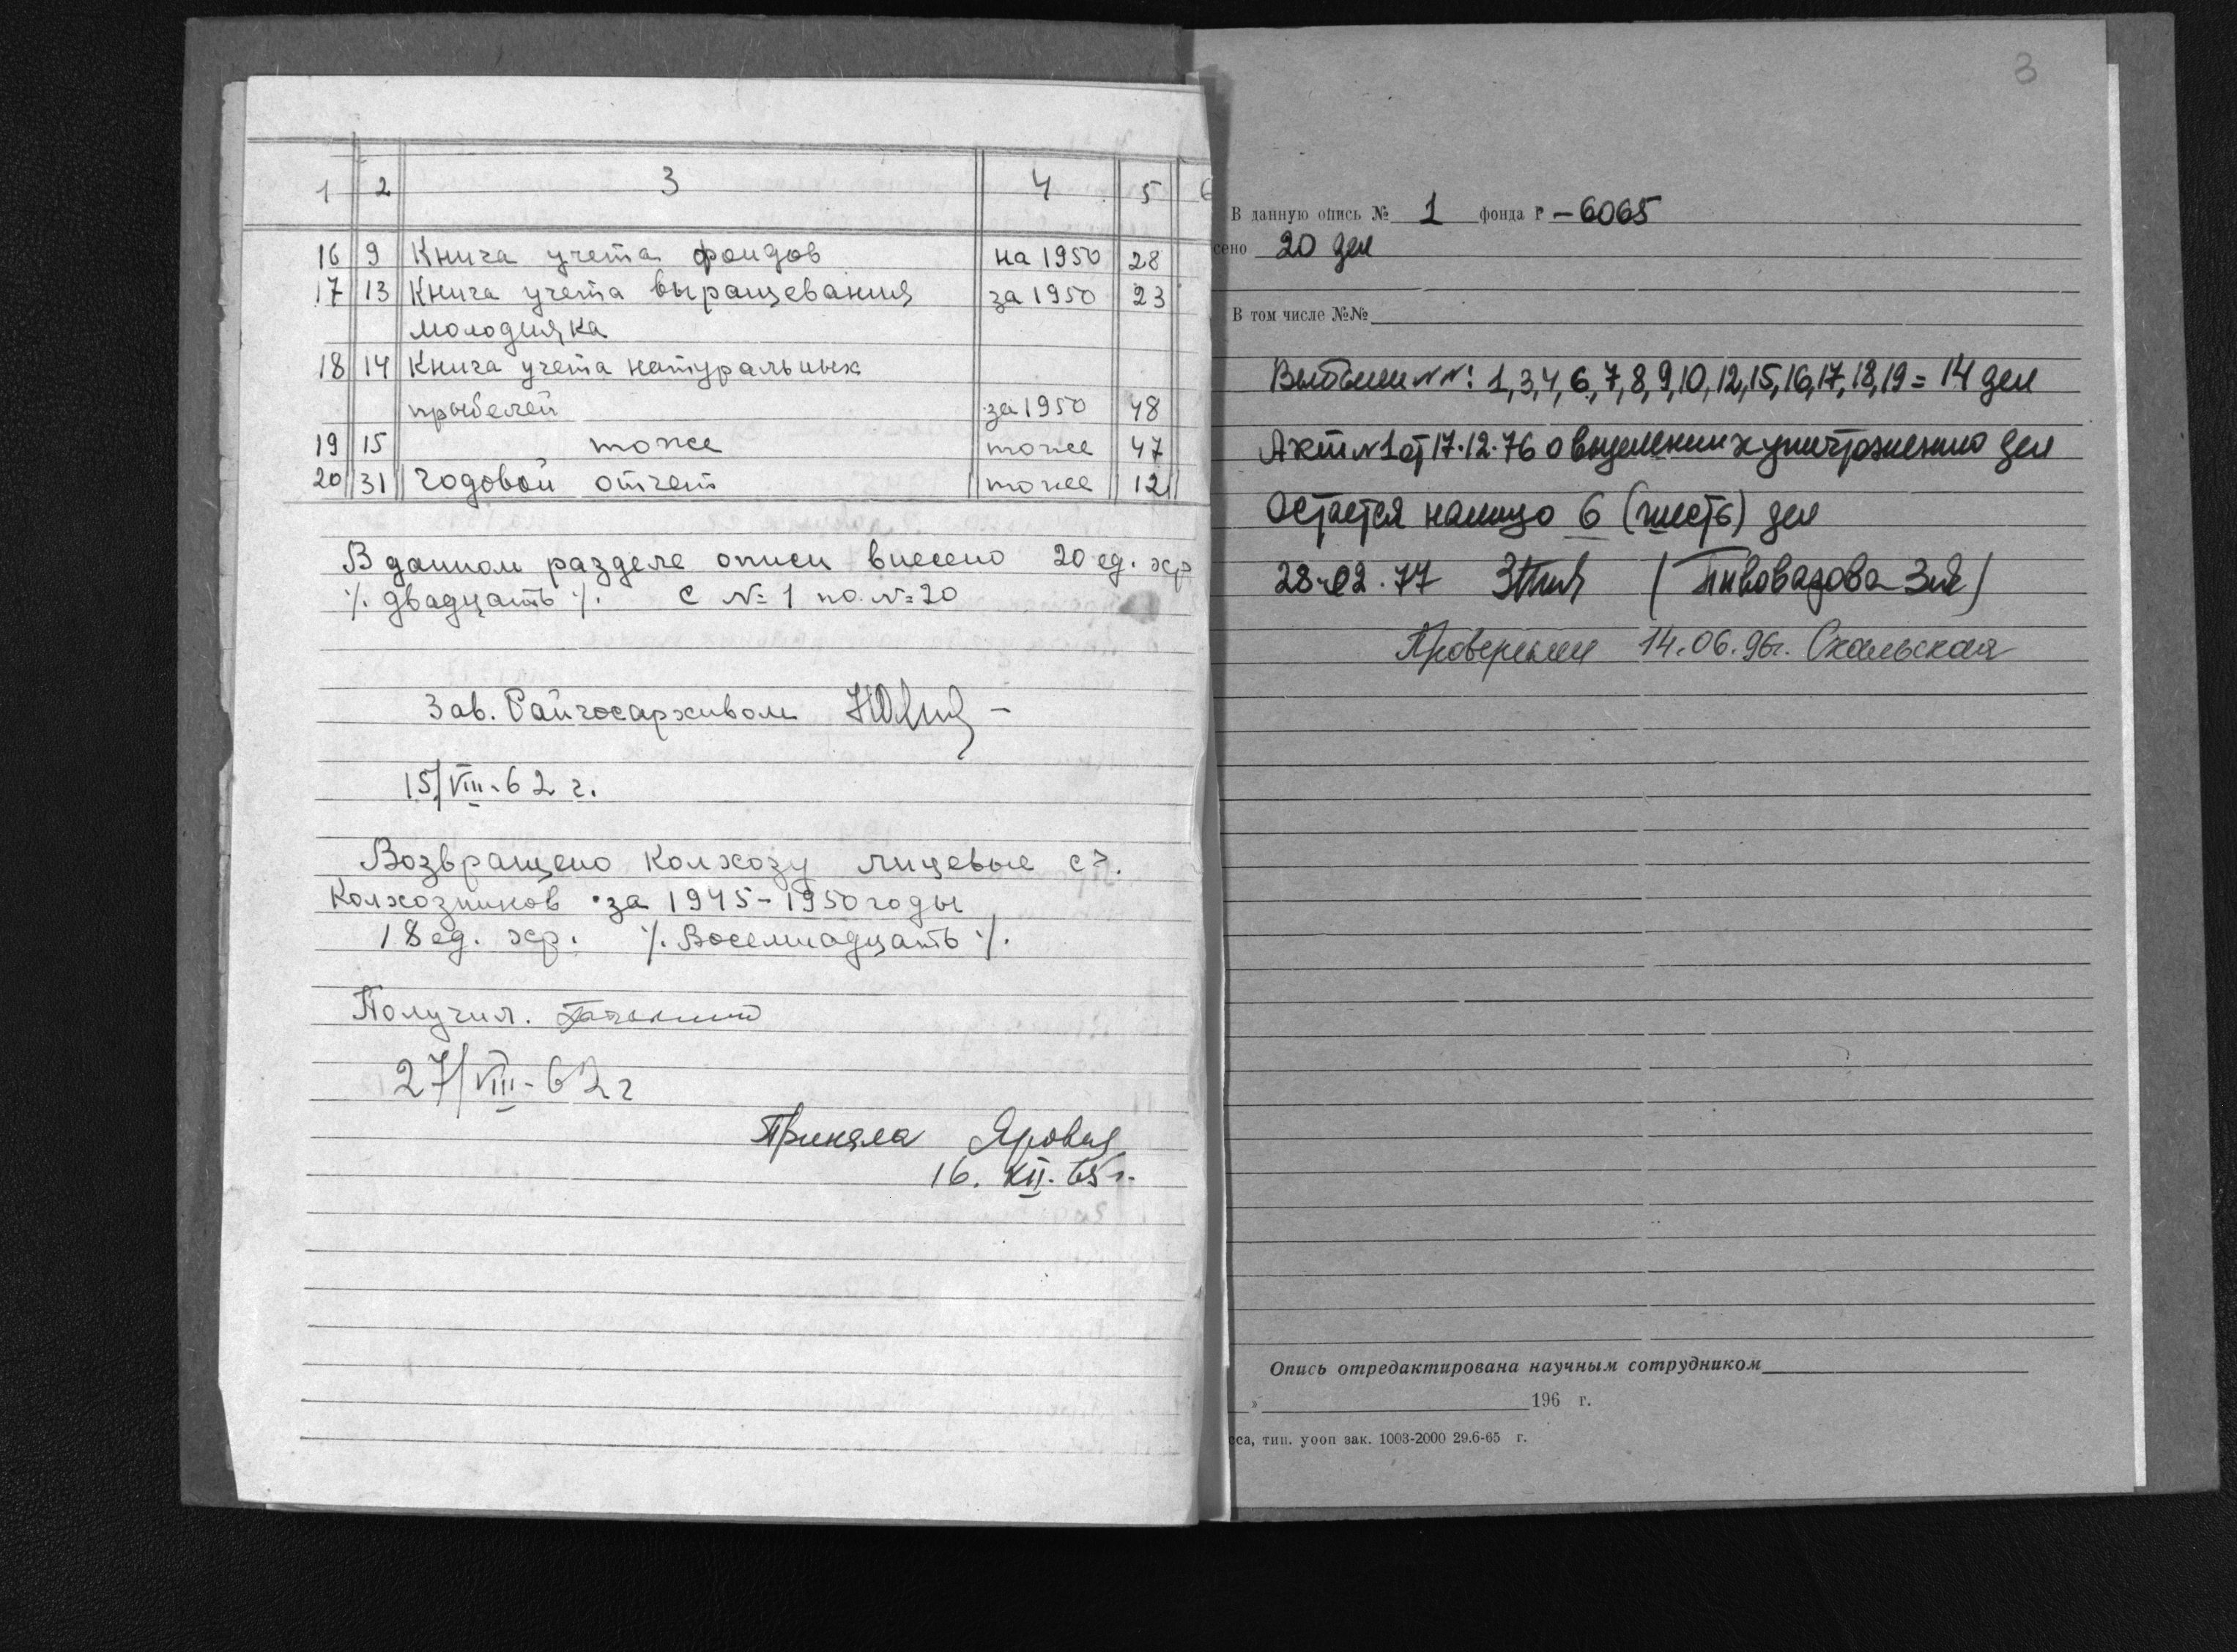 1 2 3 4 5 6
16 9 Книга учета фондов на 1950 28
17 13 Книга учета выращевания за 1950 23
молодняка
18 14 Книга учета натуральных
прыбелей за 1950 48
19 15 тоже тоже 47
20 31 Годовой отчет тоже 12
В данном разделе описи внесено 20 ед. хр
٪ двадцать ٪. с № 1 по № 20
Зав. Райгосархивом
15/VIII-62 г.
Возвращено колхозу лицевые сч.
Колхозников за 1945-1950 годы
18 ед. хр. ٪ Восемнадцать ٪.
Получил.
27/VIII-62 г
Приняла Яровая
16. XII. 65 г.
3
В данную опись № 1 фонда Р-6065
сено 20 дел
В том числе №№
Выбыли №№: 1,3,4,6,7,8,9,10,12,15,16,17,18,19 = 14 дел
Акт №1 от 17.12.76 о выделении к уничтожению дел
Остается налицо 6 (шесть) дел
28.02.77 (Пивоварова ЗИ)
Проверены 14.06.96г. Скальская
Опись отредактирована научным сотрудником
» 196 г.
сса, тип. уооп зак. 1003-2000 29.6-65 г.